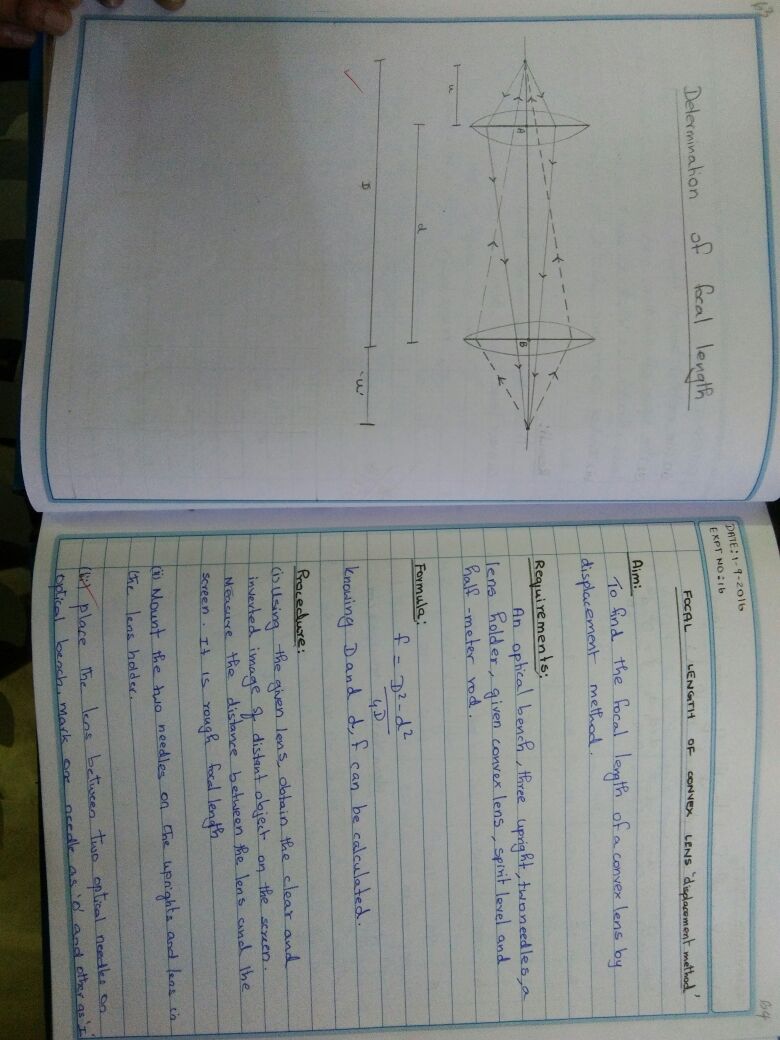 63
Determination of focal length
A
B
u
d
D
'u'
64
DATE: 1-9-2016
EXPT NO: 16
FOCAL LENGTH OF CONVEX LENS 'displacement method'
Aim:
To find the focal length of a convex lens by
displacement method.
Requirements:
An optical bench, three upright, two needles, a
lens holder, given convex lens, spirit level and
half-meter rod.
Formula:
f = D² - d²
4D
knowing D and d, f can be calculated.
Procedure:
(i) Using the given lens, obtain the clear and
inverted image of distant object on the screen.
Measure the distance between the lens and the
screen. It is rough focal length
(ii) Mount the two needles on the uprights and lens in
the lens holder.
(iii) place the lens between two optical needles on
optical bench, mark one needle as 'o' and other as 'I'